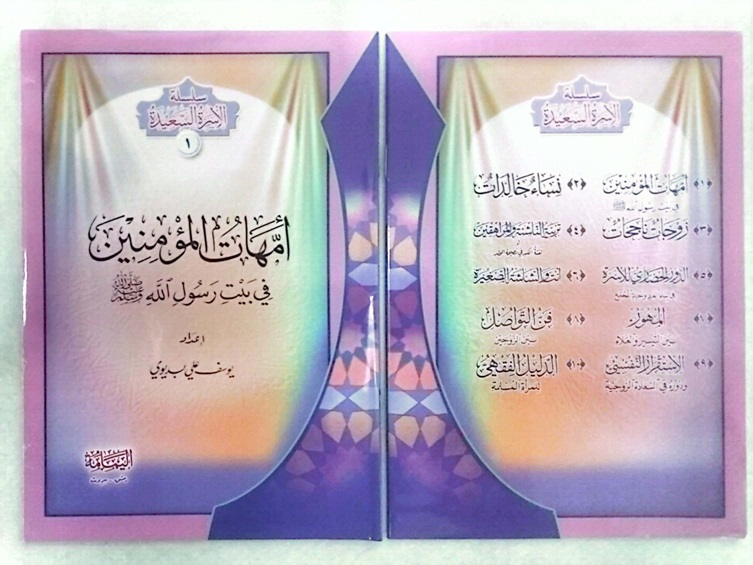 سلسلة
الأسرة السعيدة
١
أمهات المؤمنين
في بيت رسول الله ﷺ
إعداد
يوسف علي بديوي
اليمامة
سلسلة
الأسرة السعيدة
﴿١﴾ أمهات المؤمنين
في بيت رسول الله ﷺ
﴿٢﴾ نساء خالدات
﴿٣﴾ زوجات ناجحات
﴿٤﴾ تربية الناشئة والمراهقين
﴿٥﴾ الدور الحضاري للأسرة
﴿٦﴾ أنت والشاشة الصغيرة
﴿٧﴾ المهور
بين التيسير والغلاء
﴿٨﴾ فن التواصل
بين الزوجين
﴿٩﴾ الاستقرار النفسي
ودوره في السعادة الزوجية
﴿١٠﴾ الدليل الفقهي
للمرأة المسلمة